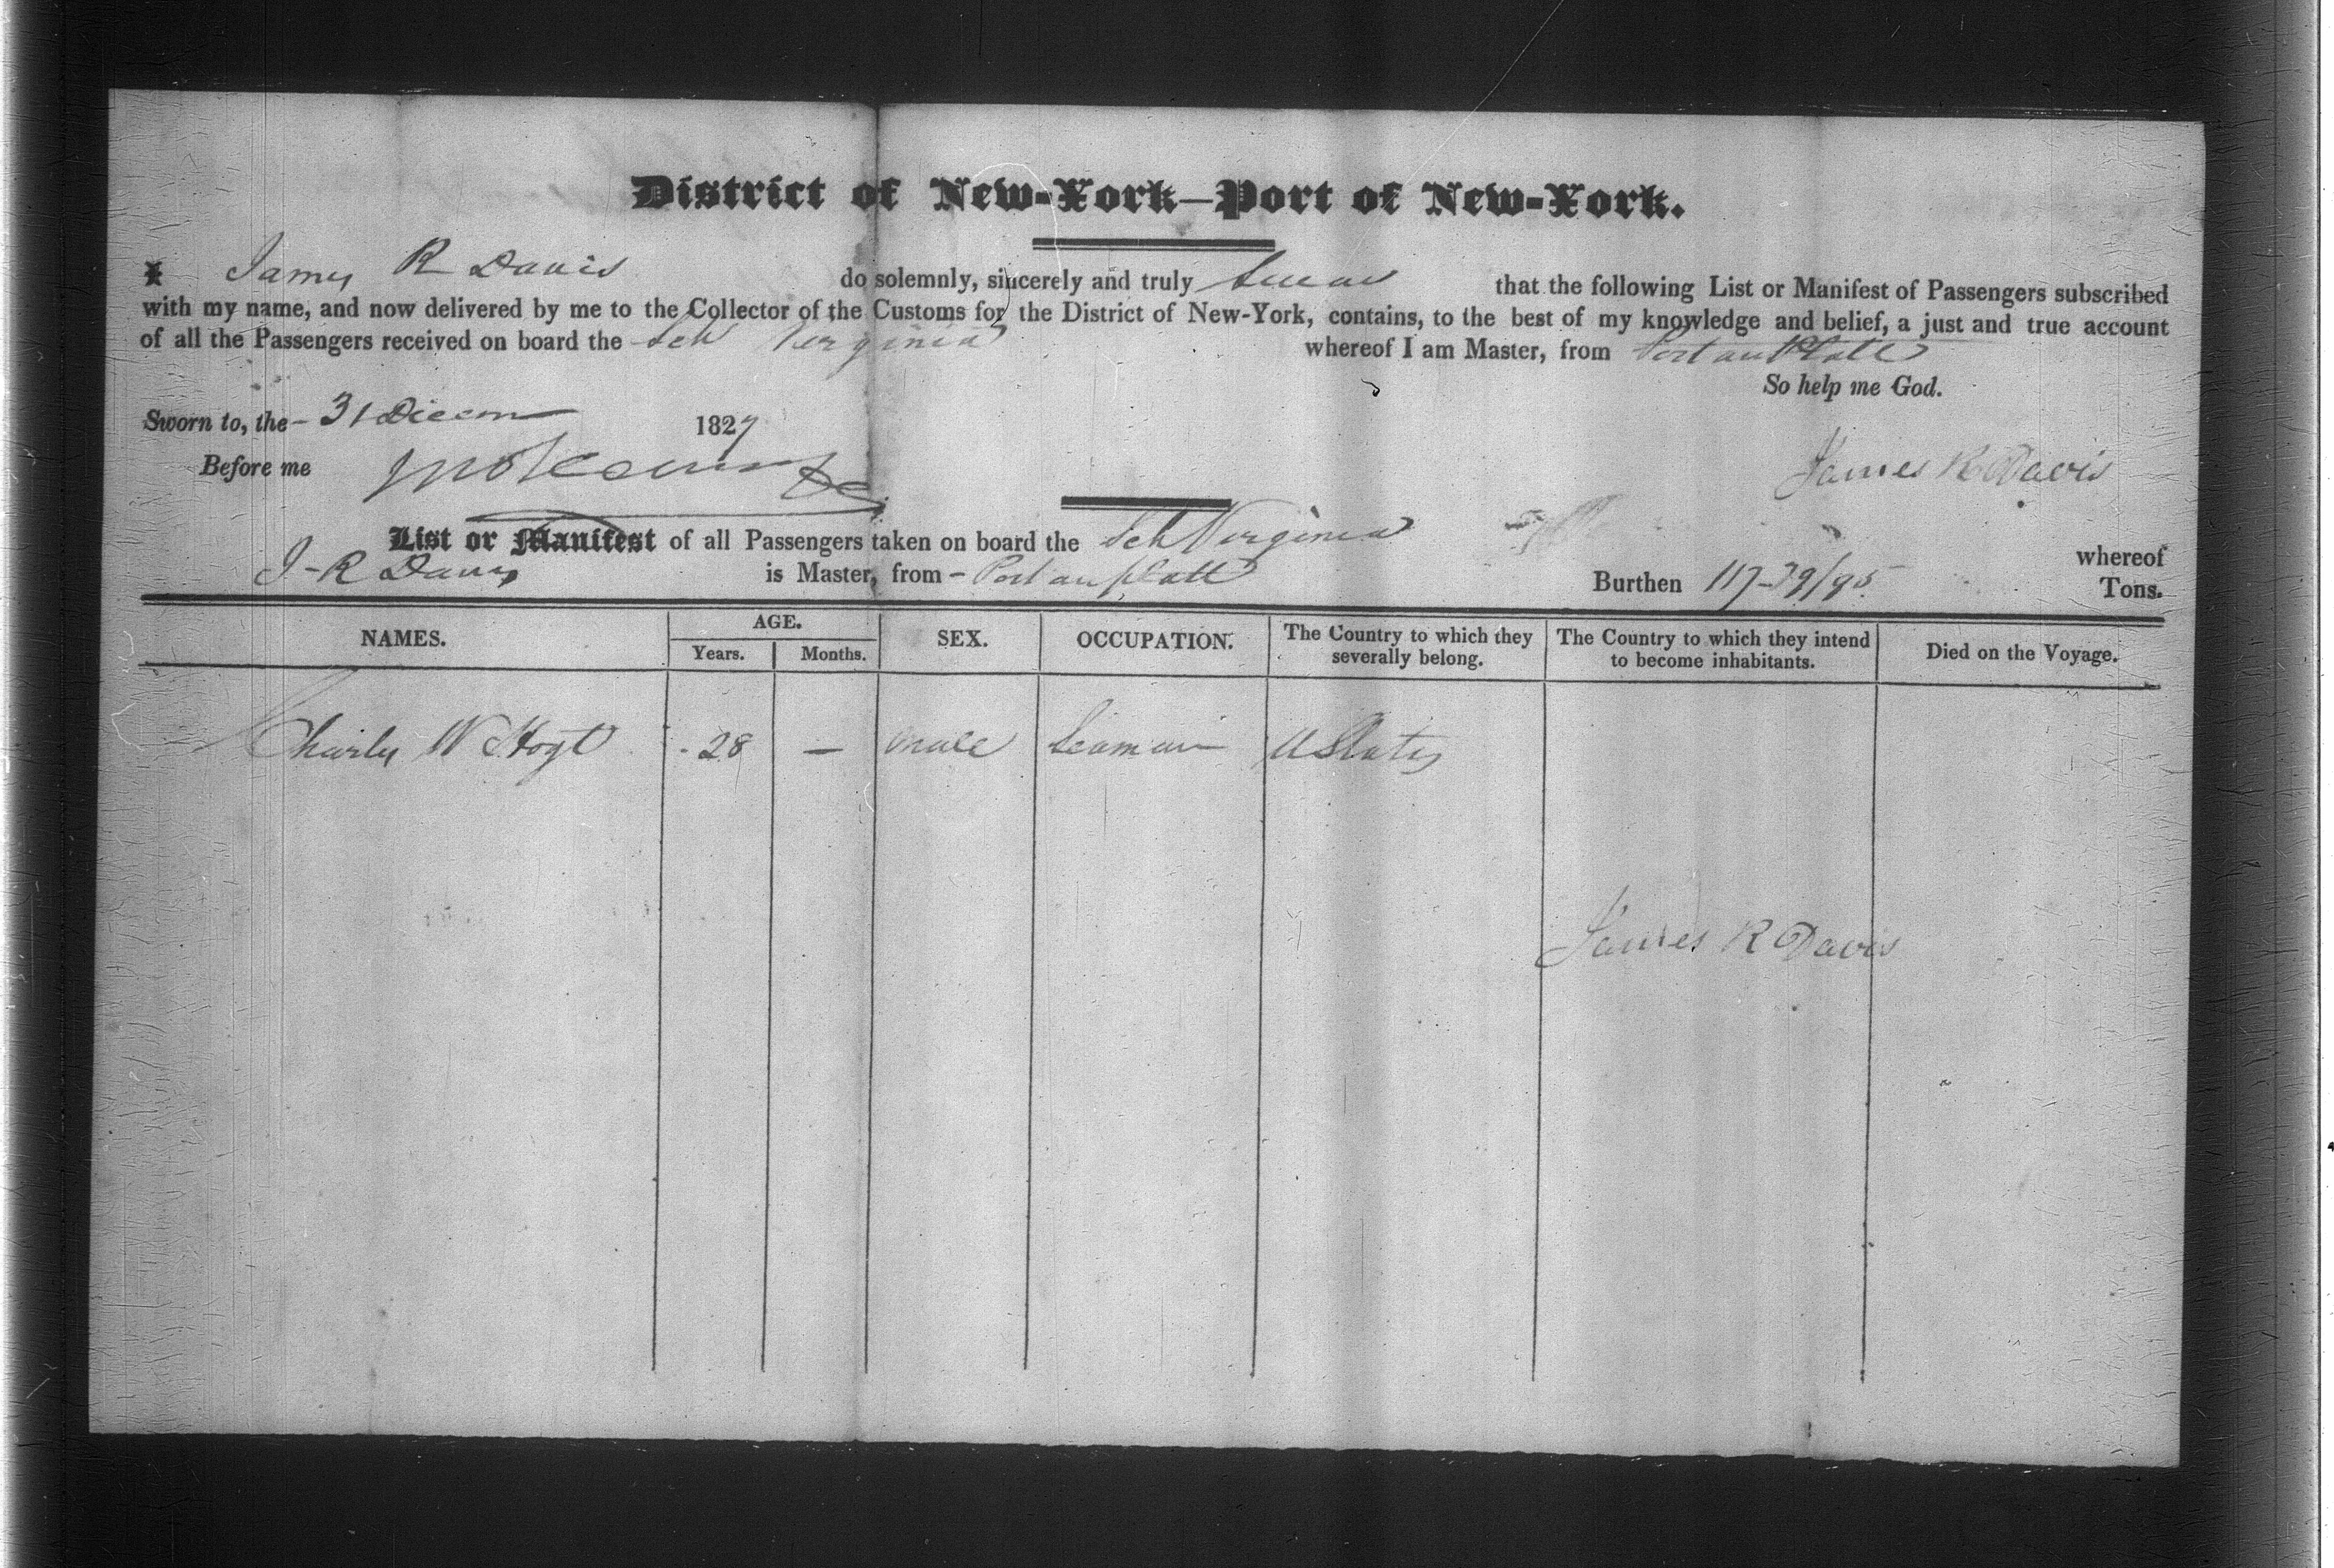 District of New-York—Port of New-York.
I James R Davis do solemnly, sincerely and truly Swear that the following List or Manifest of Passengers subscribed
with my name, and now delivered by me to the Collector of the Customs for the District of New-York, contains, to the best of my knowledge and belief, a just and true account
of all the Passengers received on board the Sch Virginia whereof I am Master, from Port au Platt
So help me God.
Sworn to, the 31 Decem 1827
Before me
James R Davis
List or Manifest of all Passengers taken on board the Sch Virginia whereof
J-R Davis is Master, from Port au Platt Burthen 117-39/95 Tons.
NAMES. AGE. SEX. OCCUPATION. The Country to which they severally belong. The Country to which they intend to become inhabitants. Died on the Voyage.
Years. Months.
Charles W Hoyt 28 — male Seaman U States
James R Davis